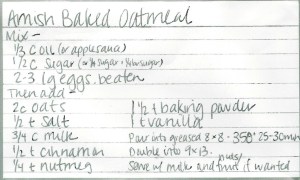 Amish Baked Oatmeal
Mix -
1/3 c oil (or applesauce)
1/2 c sugar (or 1/4 sugar + 1/4 brn sugar)
2-3 lg eggs. beaten
Then add -
2c oats 1 1/2 t baking powder
1/2 t salt 1 t vanilla
3/4 c milk Pour into greased 8x8 - 350° 25-30min
1/2 t cinnamon Double into 9x13.
1/4 t nutmeg Serve w/ milk and fruit if wanted
nuts/